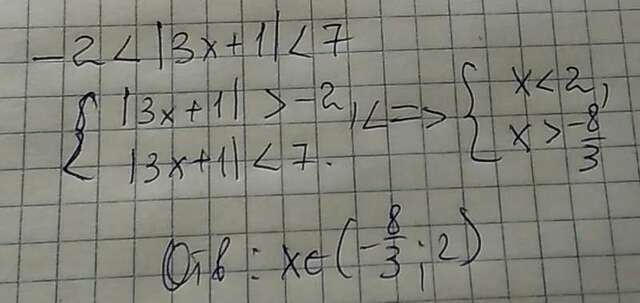 -2 < |3x+1| < 7
{ |3x+1| > -2, <=> { x < 2,
|3x+1| < 7. x > -8/3
Отв: x∈(-8/3; 2)